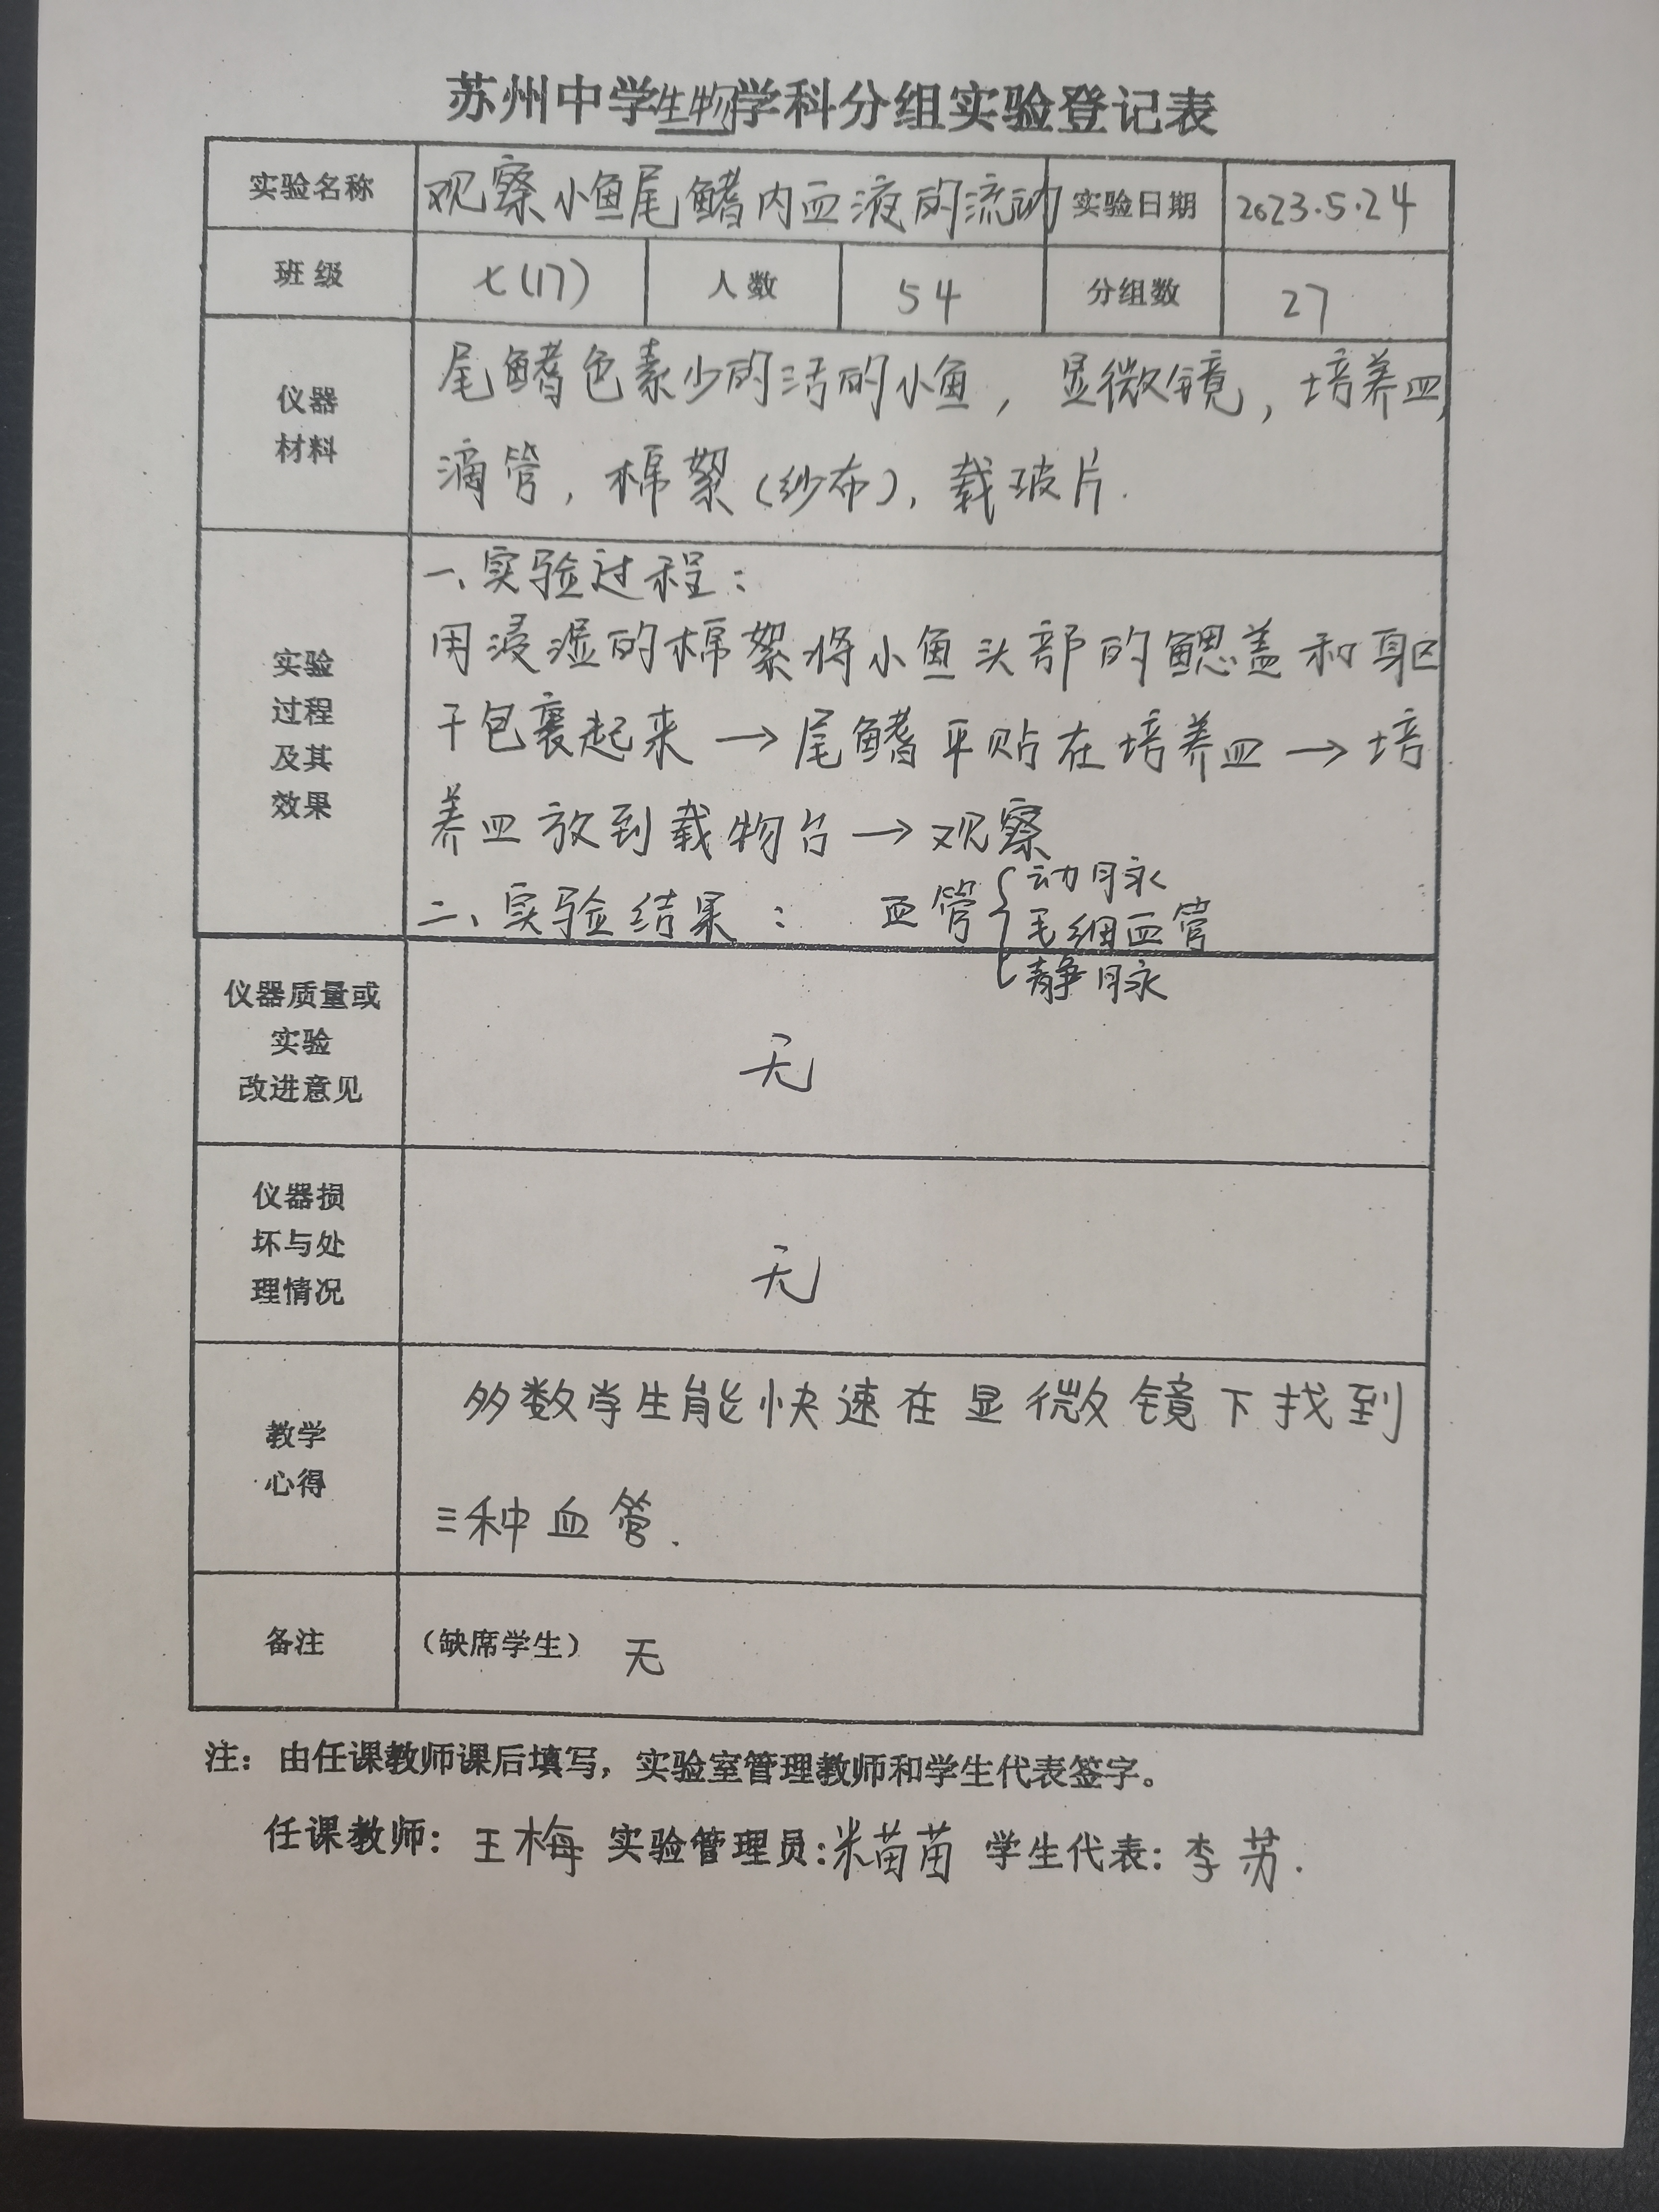 苏州中学生物学科分组实验登记表
实验名称 观察小鱼尾鳍内血液的流动 实验日期 2023.5.24
班级 七(17) 人数 54 分组数 27
仪器
材料
尾鳍色素少的活的小鱼，显微镜，培养皿，
滴管，棉絮（纱布），载玻片.
实验
过程
及其
效果
一、实验过程：
用浸湿的棉絮将小鱼头部的鳃盖和躯
干包裹起来→尾鳍平贴在培养皿→培
养皿放到载物台→观察
二、实验结果： 血管{动脉
毛细血管
静脉
仪器质量或
实验
改进意见
无
仪器损
坏与处
理情况
无
教学
心得
多数学生能快速在显微镜下找到
三种血管.
备注 （缺席学生） 无
注：由任课教师课后填写，实验室管理教师和学生代表签字。
任课教师：王梅 实验管理员：米苗苗 学生代表：李苏.